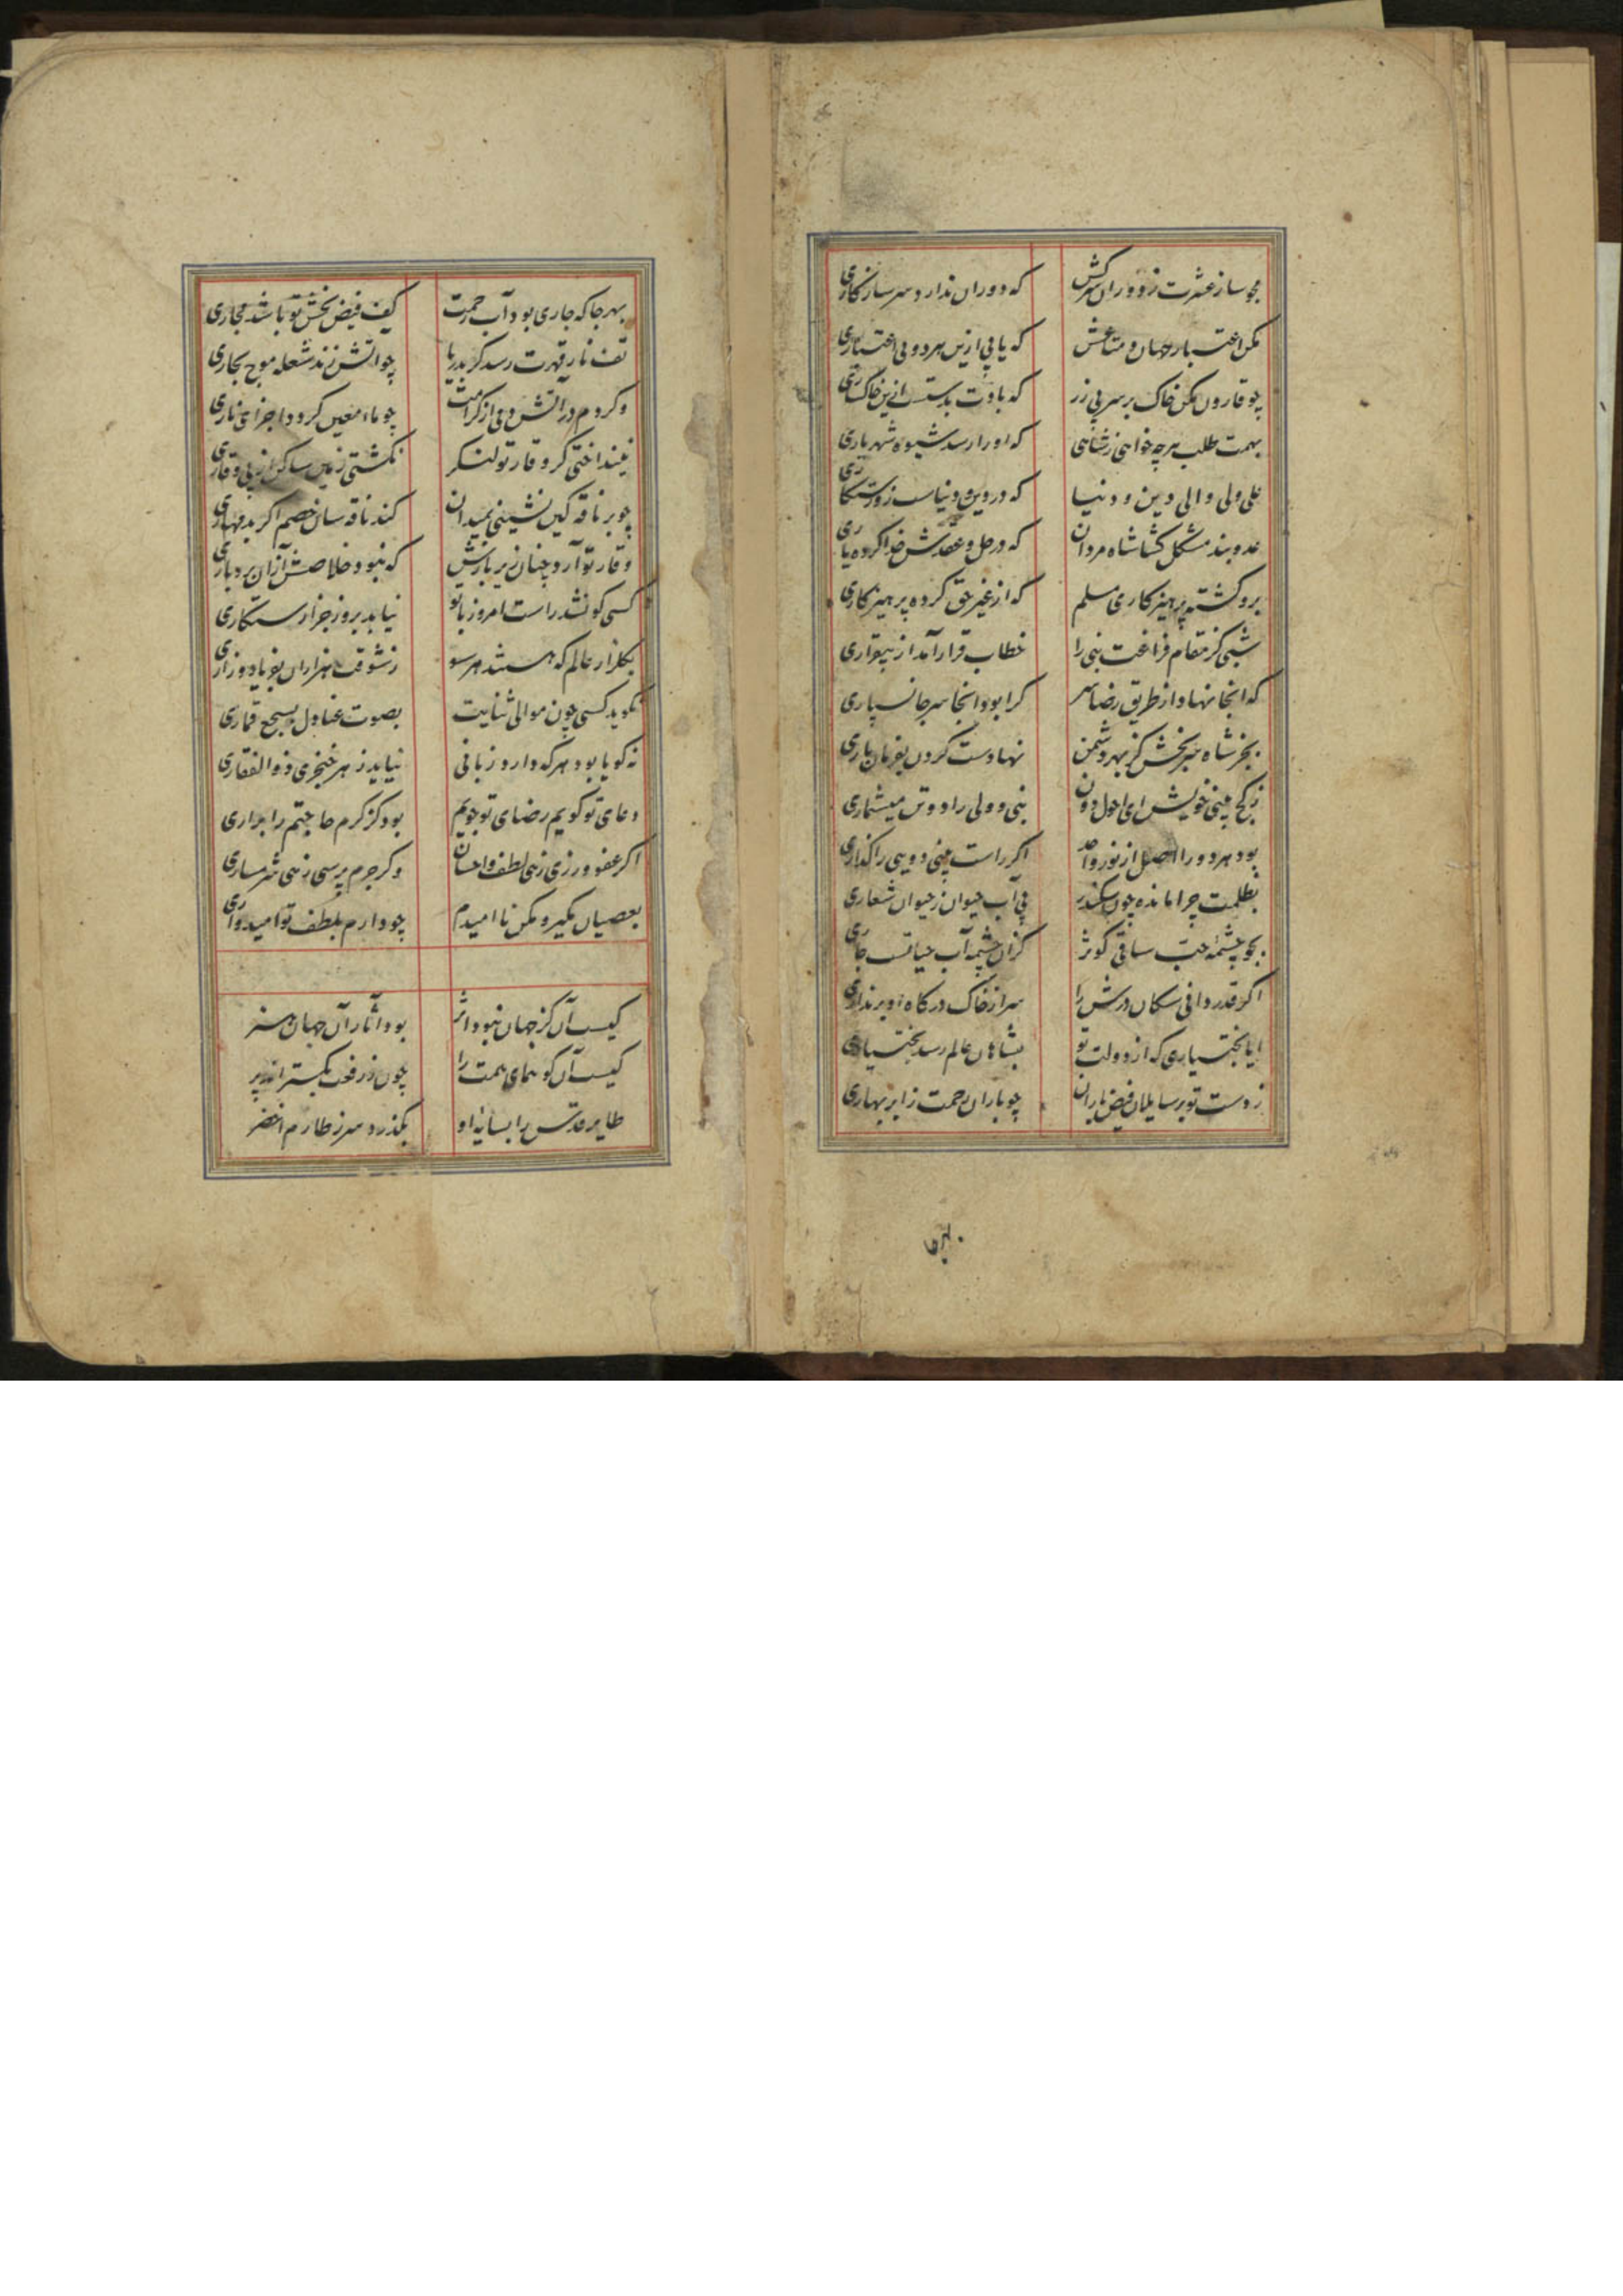 مجو ساز عشرت ز دوران سرکش که دوران ندارد سر سازکاری
مکن اعتبار جهان و متاعش که یابی ازین هر دو بی اعتباری
چو قارون مکن خاک بر سر پی زر که بادت بدست ازین خاکساری
بهمت طلب هرچه خواهی ز شاهی که او را رسد شیوه شهریاری
علی ولی والی دین و دنیا که در دین و دنیاست زو رستکاری
عدوبند مشکل کشا شاه مردان که در حل و عقدش خدا کرده یاری
برو کشته پرهیزکاری مسلم که از غیر حق کرده پرهیزکاری
شبی کز مقام فراغت نبی را خطاب قرار آمد از بیقراری
که آنجا نهاد از طریق رضا سر کرا بود آنجا سر جانسپاری
بجز شاه سربخش کز بهر دشمن نهادست کردن بفرمان باری
ز کج بینی خویش ای احول دون نبی و ولی را دو تن میشماری
بود هر دو را اصل از نور واحد اکر راست بینی دو بینی را کذاری
بظلمت چرا مانده چون سکندر پی آب حیوان ز حیوان شعاری
بجو چشمه حب ساقی کوثر کزان چشمه آب حیاتست جاری
اکر قدر دانی سکان درش را سر از خاک درکاه او برنداری
ایا بختیاری که از دولت تو بشاهان عالم رسد بختیاری
ز دست تو بر سایلان فیض باران چو باران رحمت ز ابر بهاری
بهر جا که جاری بود آب رحمت کف فیض بخش تو باشد مجاری
تف نار قهرت رسد کر بدریا چو آتش زند شعله موج بخاری
وکر دم در آتش دمی از کرامت چو ماء معین کردد اجزای ناری
نینداختی کر وقار تو لنکر نکشتی زمین ساکن از بی وقاری
چو بر ناقه کین نشینی بمیدان کند ناقه سان خصم اکر بد مهاری
وقار تو آرد چنان زیر بارش که نبود خلاصش از آن بردباری
کسی کو نشد راست امروز با تو نیابد بروز جزا رستکاری
بکلزار عالم که هستند هر سو ز شوقت هزاران بفریاد و زاری
نکوید کسی چون موالی ثنایت بصوت عنادل بسجع قماری
نه کویا بود هر که دارد زبانی نیاید ز هر خنجری ذوالفقاری
دعای تو کویم رضای تو جویم بود کز کرم حاجتم را براری
اکر عفو ورزی زهی لطف و احسان وکر جرم پرسی زهی شرمساری
بعصیان مکیر و مکن ناامیدم چو دارم بلطف تو امیدواری
کیست آن کز جهان نبود اثر بود آثار آن جهان هنر
کیست آن کو همای همت را چون ز رفعت بکستراند پر
طایر قدس را بسایه او بکذرد سر ز طارم اخضر
بهر جا